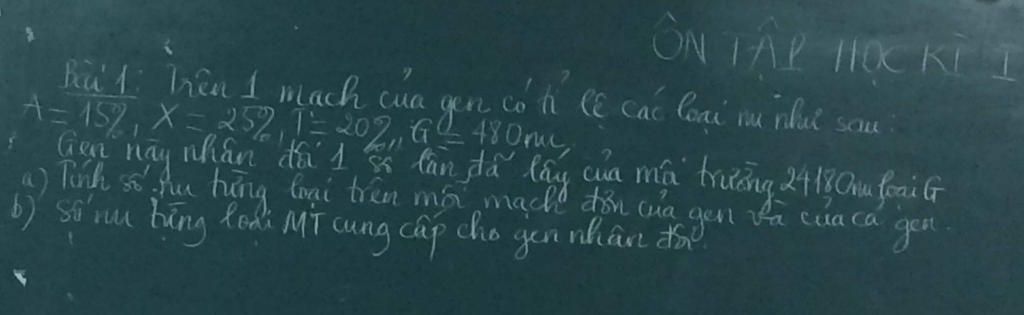 ÔN TẬP HỌC KÌ I
Bài 1: Trên 1 mạch của gen có tỉ lệ các loại nu như sau:
A = 15%, X = 25%, T = 20%, G = 480nu,
Gen này nhân đôi 1 số lần đã lấy của môi trường nu loại G
a) Tính số nu từng loại trên mỗi mạch đơn của gen và của cả gen.
b) Số nu từng loại MT cung cấp cho gen nhân đôi.